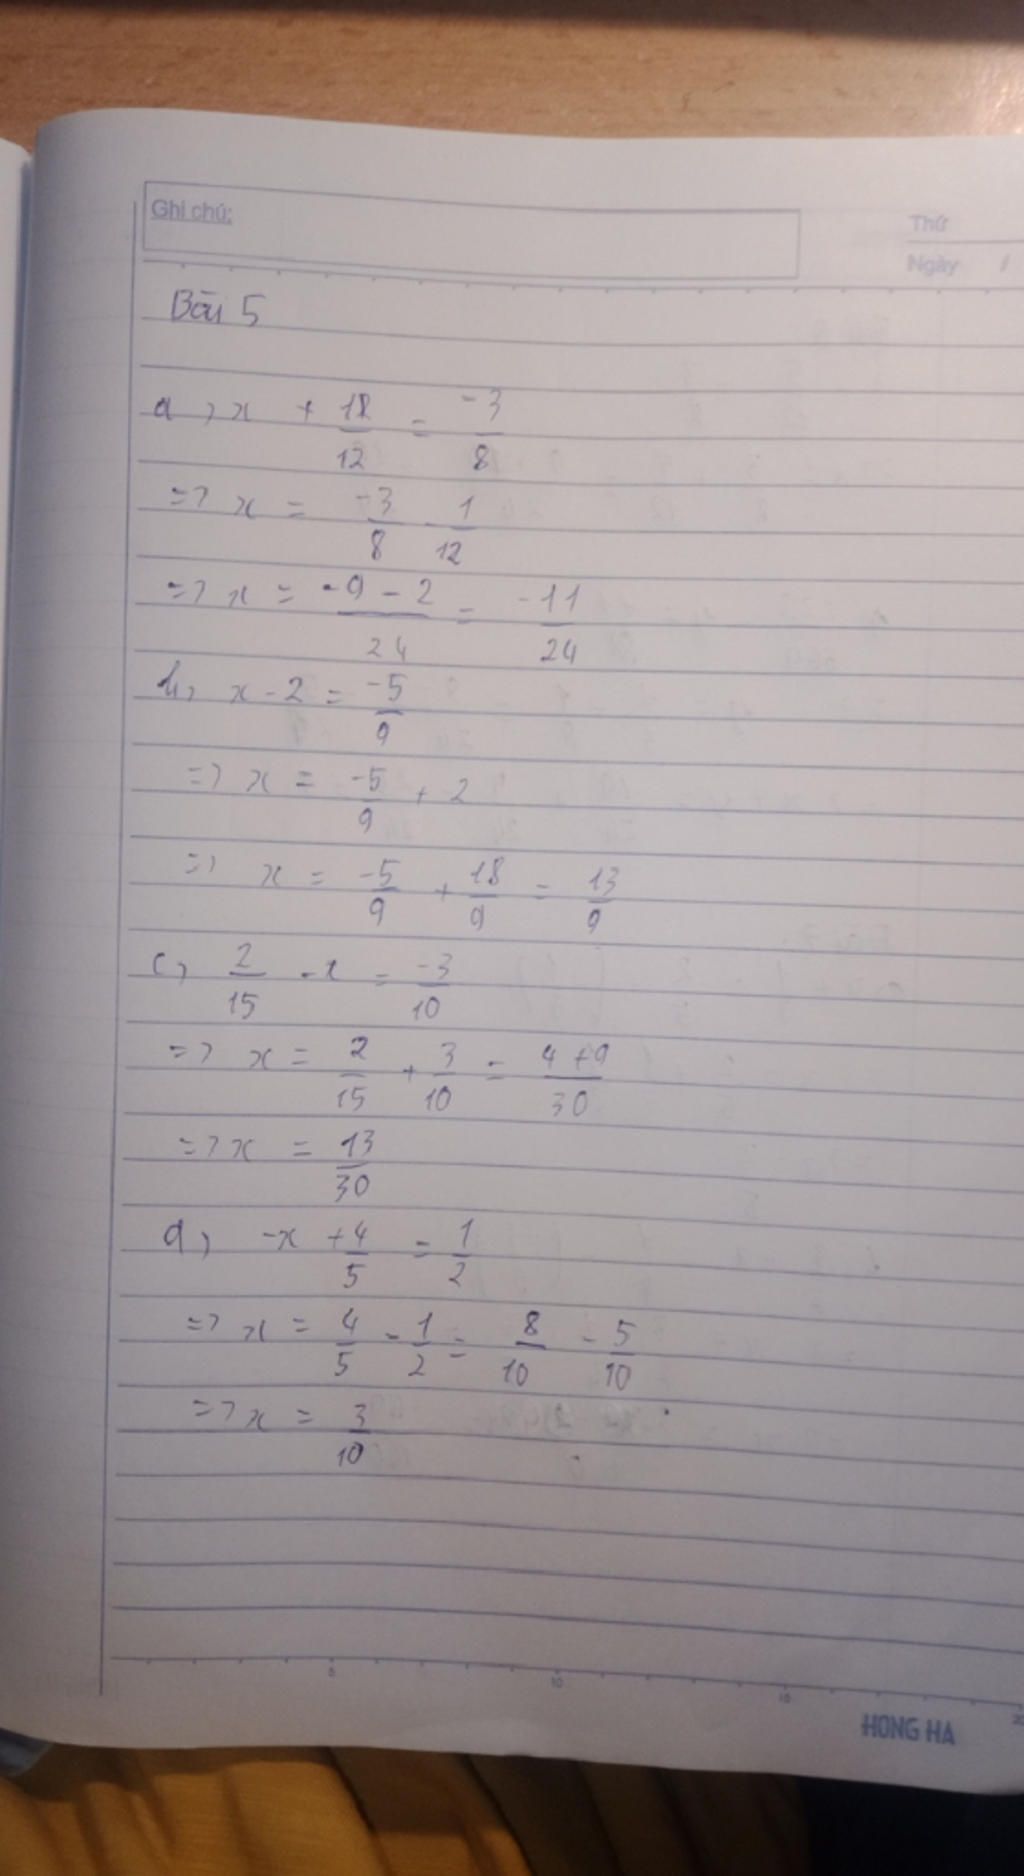 Ghi chú:
Thứ
Ngày /
Bài 5
a, x + 18/12 = -3/8
=> x = -3/8 - 1/12
=> x = (-9 - 2)/24 = -11/24
b, x - 2 = -5/9
=> x = -5/9 + 2
=> x = -5/9 + 18/9 = 13/9
c, 2/15 - x = -3/10
=> x = 2/15 + 3/10 = (4 + 9)/30
=> x = 13/30
d, -x + 4/5 = 1/2
=> x = 4/5 - 1/2 = 8/10 - 5/10
=> x = 3/10
5 10 15
HONG HA